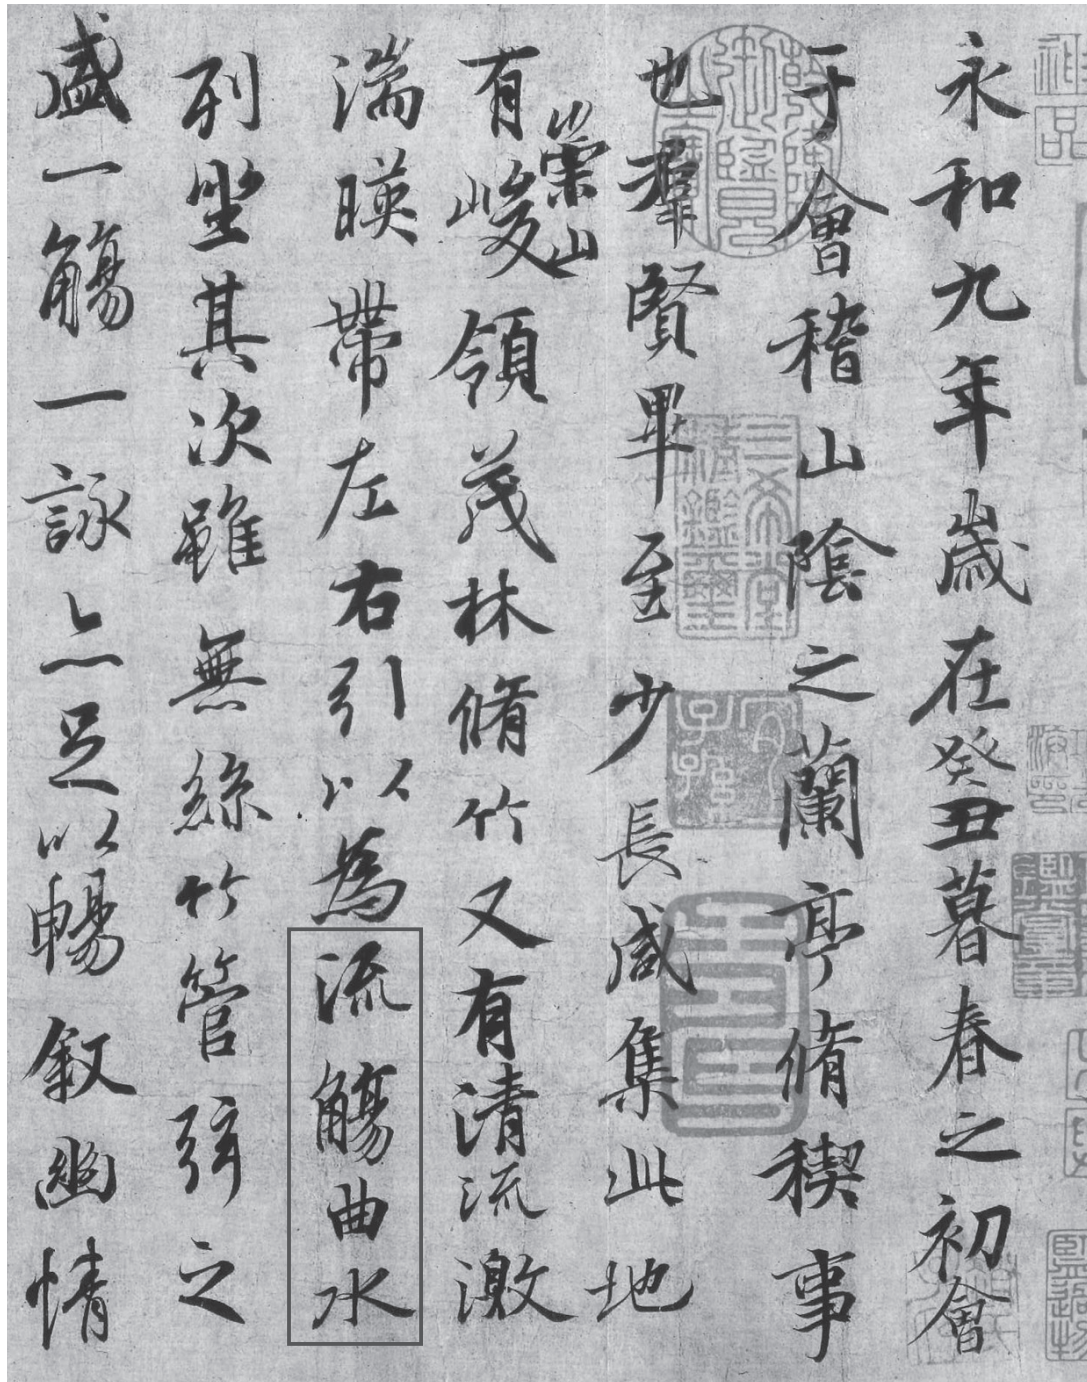 永和九年歲在癸丑暮春之初會
于會稽山陰之蘭亭脩稧事
也羣賢畢至少長咸集此地
有崇山峻領茂林脩竹又有清流激
湍暎帶左右引以為流觴曲水
列坐其次雖無絲竹管弦之
盛一觴一詠亦足以暢敘幽情